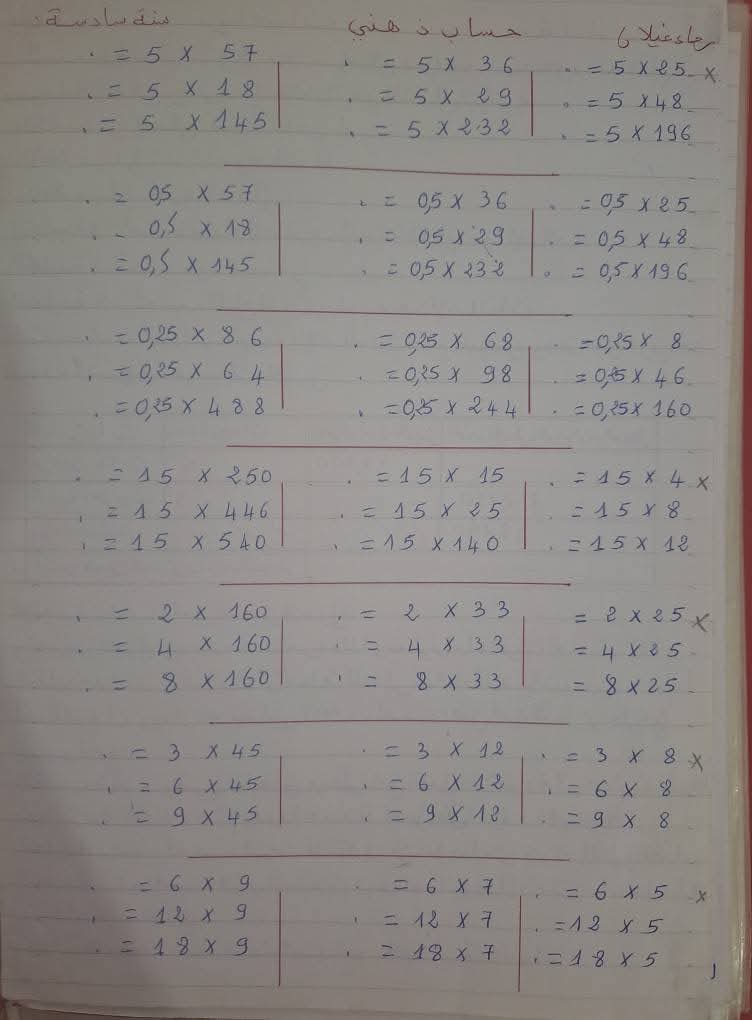 حساب ذهني سنة سادسة:
= 5 × 25 = 5 × 36 = 5 × 57
= 5 × 48 = 5 × 29 = 5 × 18
= 5 × 196 = 5 × 232 = 5 × 145
= 0,5 × 25 = 0,5 × 36 = 0,5 × 57
= 0,5 × 48 = 0,5 × 29 = 0,5 × 18
= 0,5 × 196 = 0,5 × 232 = 0,5 × 145
= 0,25 × 8 = 0,25 × 68 = 0,25 × 86
= 0,25 × 46 = 0,25 × 98 = 0,25 × 64
= 0,25 × 160 = 0,25 × 244 = 0,25 × 488
= 15 × 4 = 15 × 15 = 15 × 250
= 15 × 8 = 15 × 25 = 15 × 446
= 15 × 12 = 15 × 140 = 15 × 540
= 2 × 25 = 2 × 33 = 2 × 160
= 4 × 25 = 4 × 33 = 4 × 160
= 8 × 25 = 8 × 33 = 8 × 160
= 3 × 8 = 3 × 12 = 3 × 45
= 6 × 8 = 6 × 12 = 6 × 45
= 9 × 8 = 9 × 12 = 9 × 45
= 6 × 5 = 6 × 7 = 6 × 9
= 12 × 5 = 12 × 7 = 12 × 9
= 18 × 5 = 18 × 7 = 18 × 9